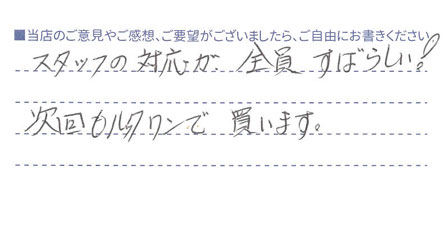 ■当店のご意見やご感想、ご要望がございましたら、ご自由にお書きください
スタッフの対応が、全員すばらしい!
次回もルクワンで買います。